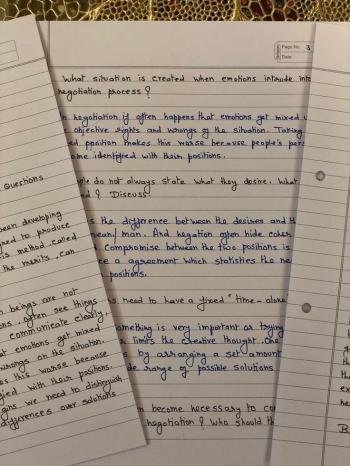 Page No. 3
Date
What situation is created when emotions intrude into
negotiation process ?
negotiation if often happens that emotions get mixed
objective rights and wrongs of the situation. Taking
position makes this worse because people's
identified with their positions.
do not always state what they desire. What
? Discuss.
is the difference between the desires and
mean. And negation often hide
compromise between the two positions is
a agreement which statisties the
positions.
need to have a fixed " time - alone
something is very important as trying
limits the creative thought. One
by arranging a set amount
range of possible solutions
become necessary to
negotiation ? Who should
Questions
been developing
to produce
this method called
the merits, can
beings are not
often see things
communicate clearly.
emotions get mixed
wrongs on the situation.
this worse because
with their positions.
we need to distinguish
differences over solutions
th
the
ex
he
B